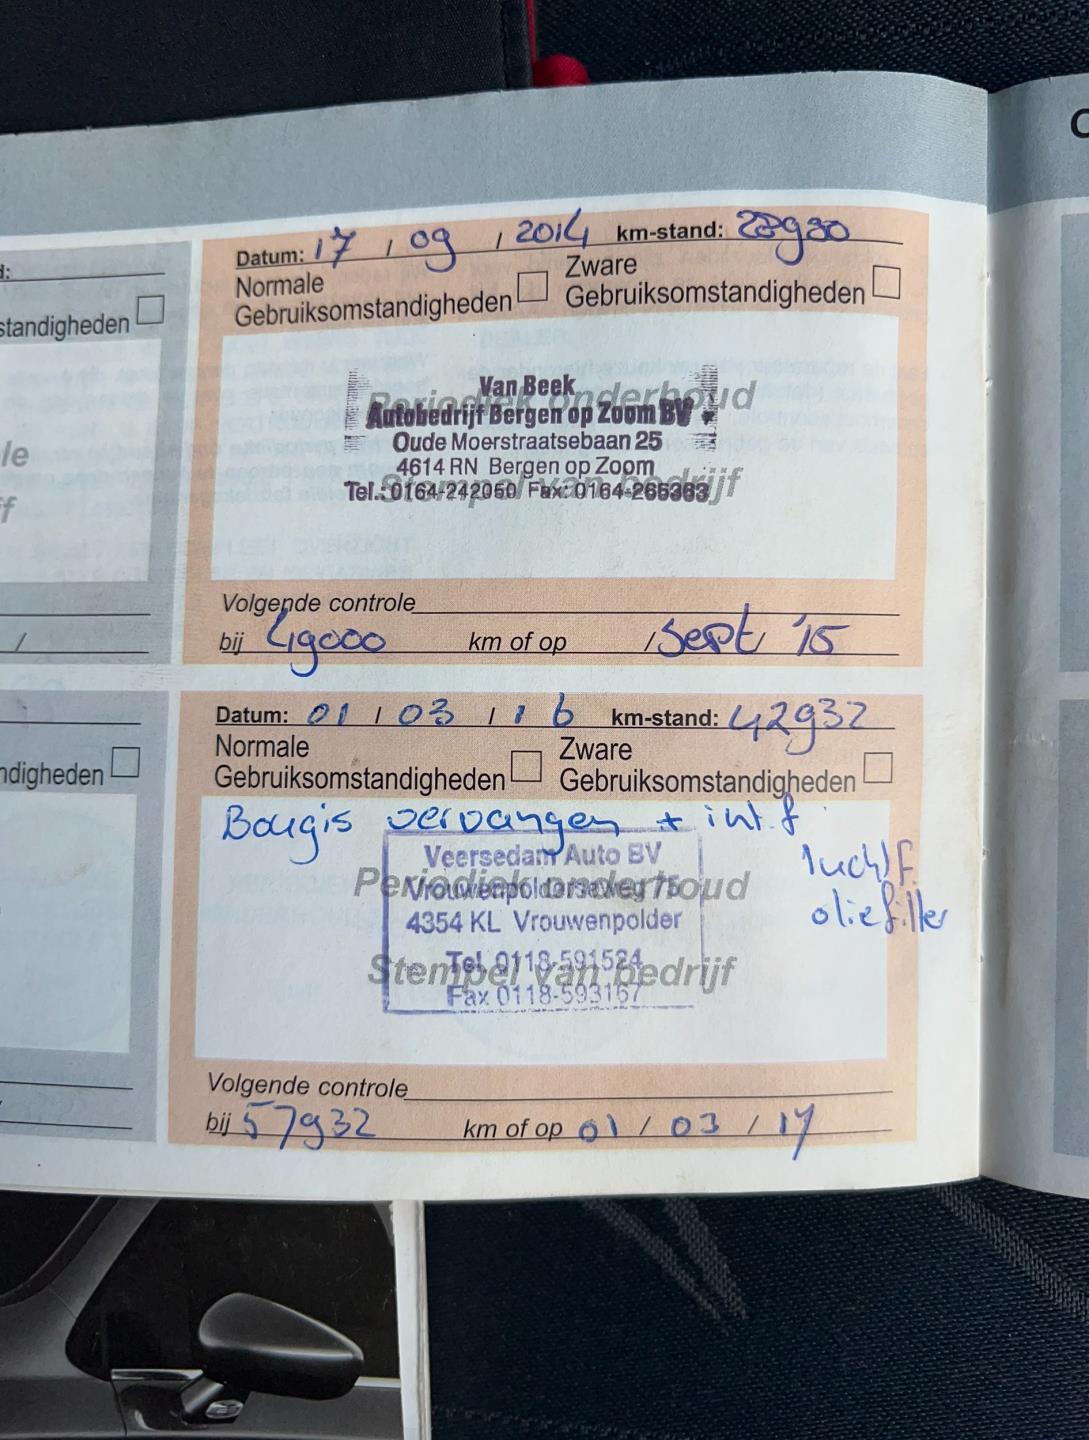 C
d:
standigheden
le
f
/
Datum: 17 / 09 / 2014 km-stand: 28980
Normale Gebruiksomstandigheden
Zware Gebruiksomstandigheden
Periodiek onderhoud
Stempel van bedrijf
Van Beek
Autobedrijf Bergen op Zoom BV
Oude Moerstraatsebaan 25
4614 RN Bergen op Zoom
Tel.: 0164-242050 Fax: 0164-265363
Volgende controle
bij 49000 km of op / Sept / '15
ndigheden
Datum: 01 / 03 / 16 km-stand: 42932
Normale Gebruiksomstandigheden
Zware Gebruiksomstandigheden
Bougis vervangen + int.f
luchtf.
oliefilter
Periodiek onderhoud
Stempel van bedrijf
Veersedam Auto BV
Vrouwenpolderseweg 75
4354 KL Vrouwenpolder
Tel. 0118-591524
Fax 0118-593167
Volgende controle
bij 57932 km of op 01 / 03 / 17